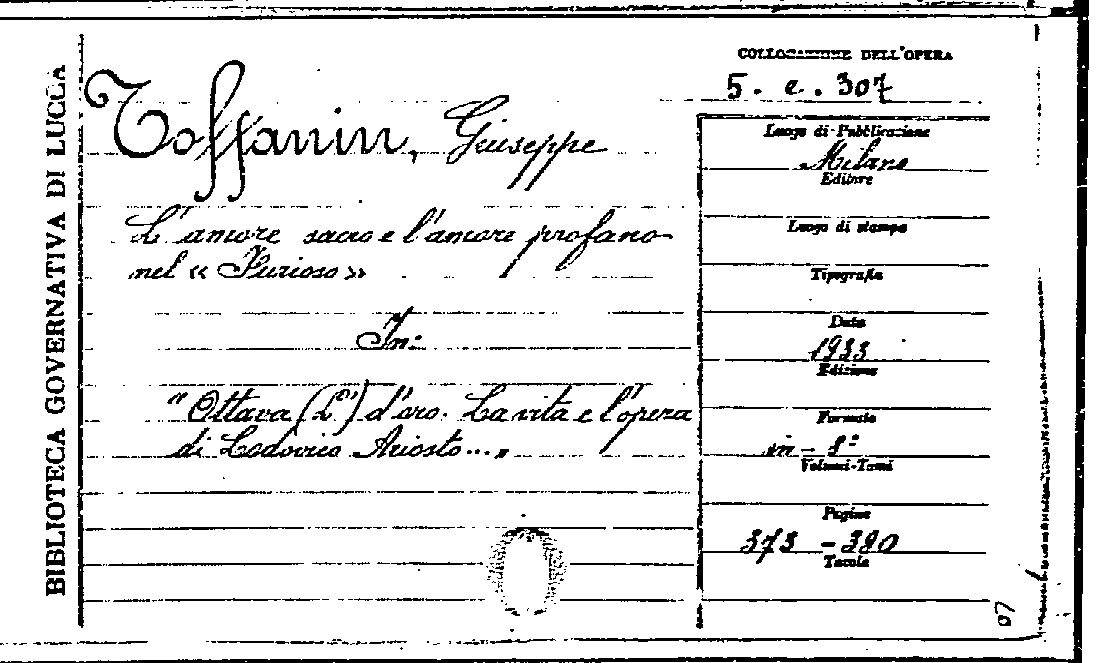 BIBLIOTECA GOVERNATIVA DI LUCCA
COLLOCAZIONE DELL'OPERA
5. e. 307
Toffanin, Giuseppe
L'amore sacro e l'amore profano
nel « Furioso »
In:
"Ottava (L') d'oro. La vita e l'opera
di Lodovico Ariosto..."
Luogo di Pubblicazione
Milano
Editore
Luogo di stampa
Tipografia
Data
1933
Edizione
Formato
in - 8º
Volumi-Tomi
Pagine
373 - 390
Tavole
07